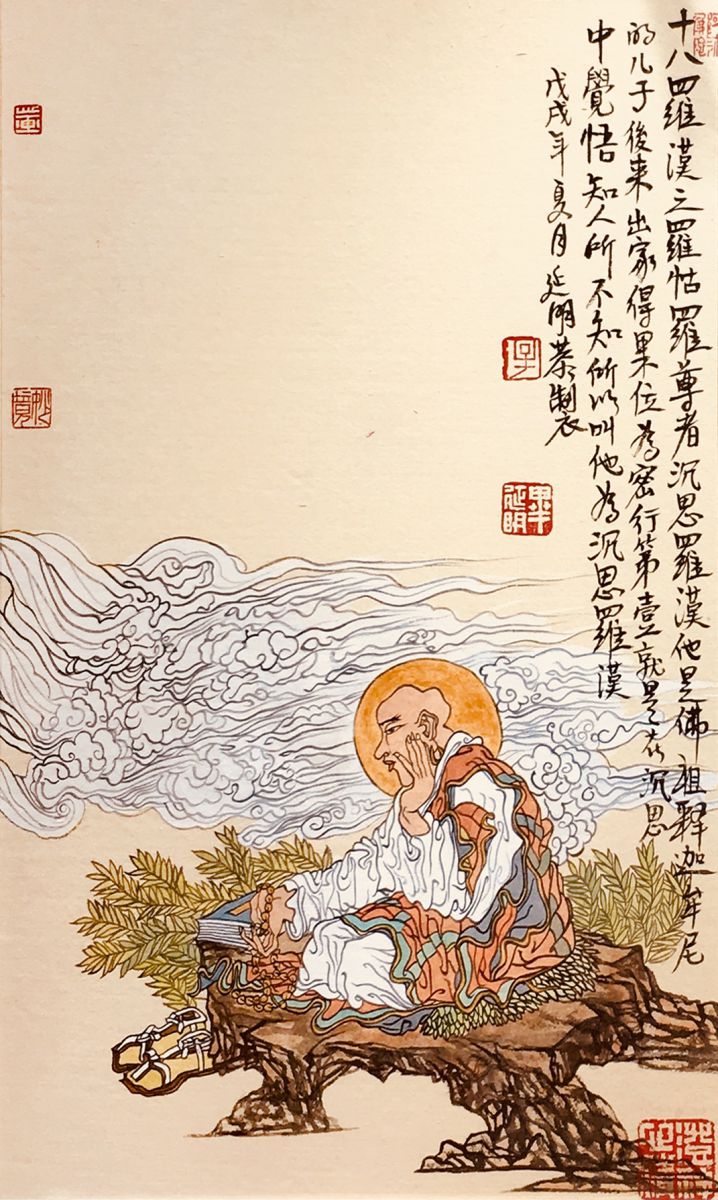 十八羅漢之羅怙羅尊者沉思羅漢他是佛祖釋迦牟尼
的儿子後来出家得果位為密行第壹就是在沉思
中覺悟知人所不知所以叫他為沉思羅漢
戊戌年夏月延明恭制
延明